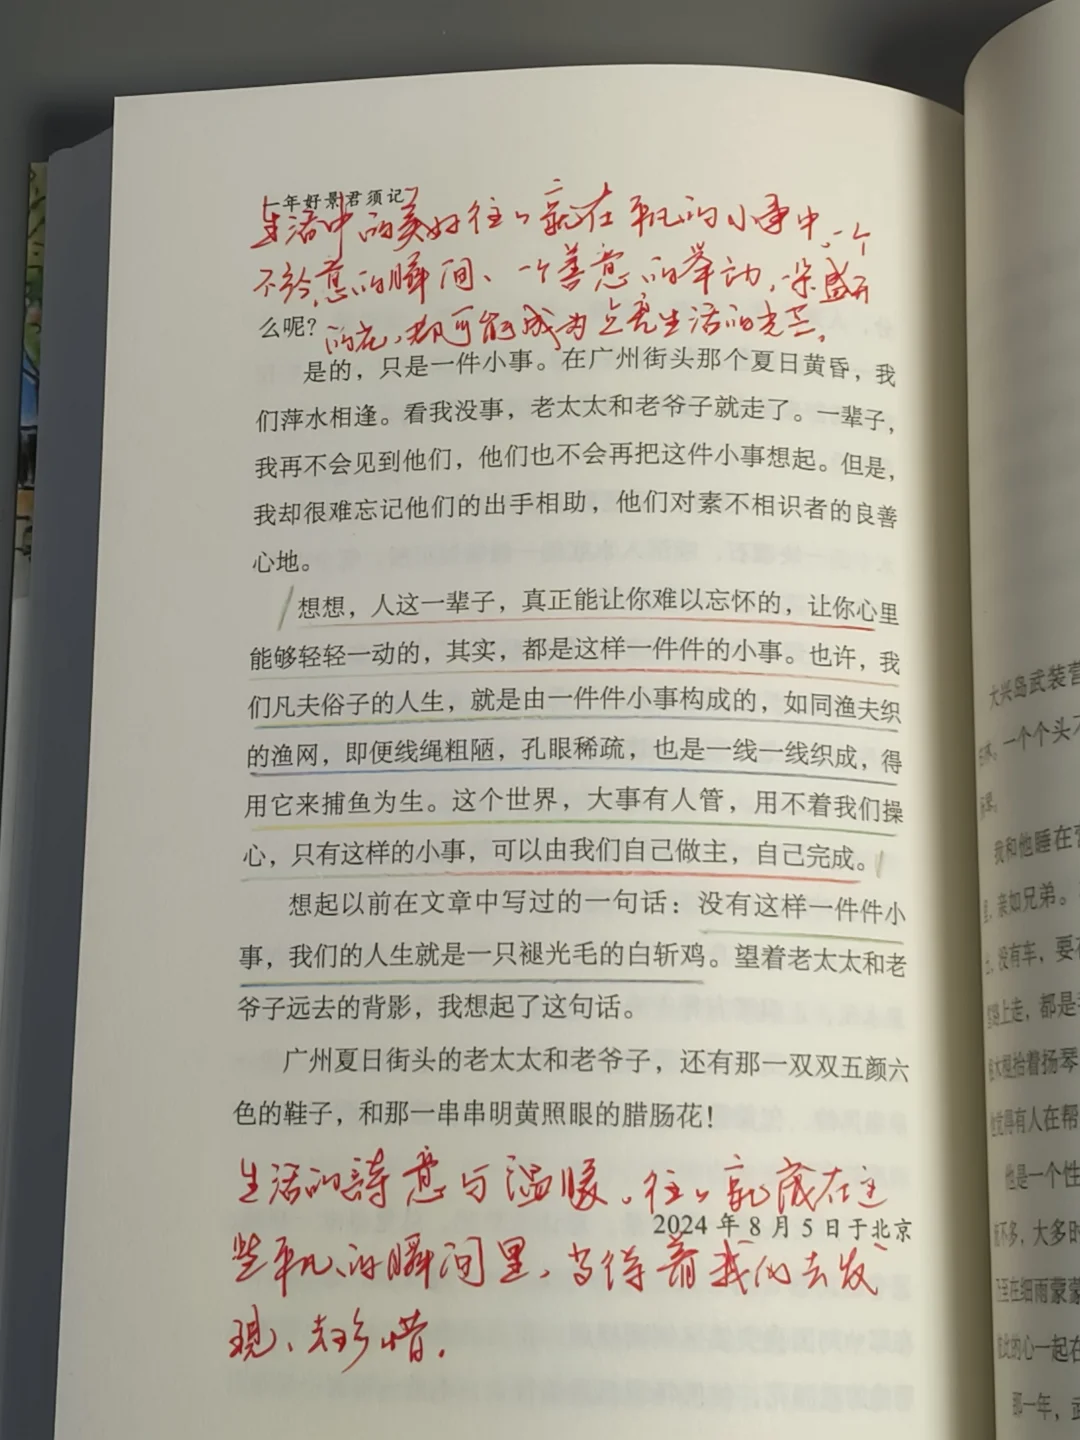 一年好景君须记
生活中的美好往往就在平凡的小事中，一个
不经意的瞬间、一个善意的举动，一朵盛开
的花，都可能成为点亮生活的光芒。
么呢？
是的，只是一件小事。在广州街头那个夏日黄昏，我
们萍水相逢。看我没事，老太太和老爷子就走了。一辈子，
我再不会见到他们，他们也不会再把这件小事想起。但是，
我却很难忘记他们的出手相助，他们对素不相识者的良善
心地。
想想，人这一辈子，真正能让你难以忘怀的，让你心里
能够轻轻一动的，其实，都是这样一件件的小事。也许，我
们凡夫俗子的人生，就是由一件件小事构成的，如同渔夫织
的渔网，即便线绳粗陋，孔眼稀疏，也是一线一线织成，得
用它来捕鱼为生。这个世界，大事有人管，用不着我们操
心，只有这样的小事，可以由我们自己做主，自己完成。
想起以前在文章中写过的一句话：没有这样一件件小
事，我们的人生就是一只褪光毛的白斩鸡。望着老太太和老
爷子远去的背影，我想起了这句话。
广州夏日街头的老太太和老爷子，还有那一双双五颜六
色的鞋子，和那一串串明黄照眼的腊肠花！
生活的詩意与温暖，往往就藏在这
2024 年 8 月 5 日于北京
些平凡的瞬间里，等待着我们去发
现、去珍惜。
大兴岛武装营
一个个头不
我和他睡在营
里，亲如兄弟。
没有车，要
路上走，都是
木棍抬着扬琴
觉得有人在帮
他是一个性
不多，大多时
至在细雨蒙蒙
此的心一起在
那一年，武